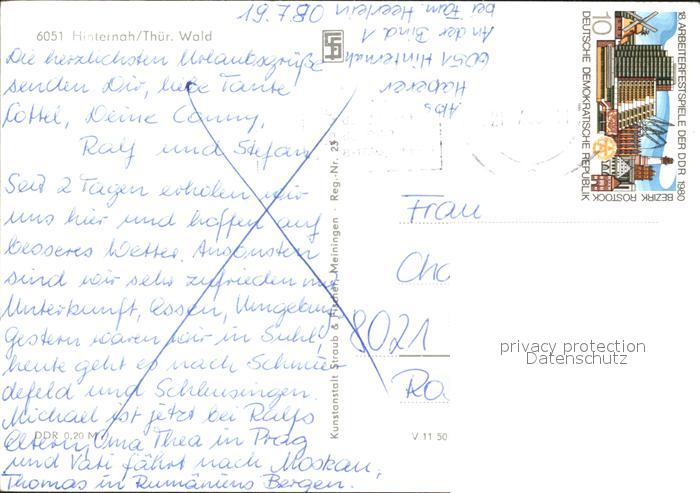 6051 Hinternah/Thür. Wald
19.7.80
Abs.
Haberer
6051 Hinternah
An der Bind 1
bei Fam. Heerlein
Die herzlichsten Urlaubsgrüße
senden Dir, liebe Tante
Lottel, Deine Conny,
Ralf und Stefan.
Seit 2 Tagen erholen wir
uns hier und hoffen auf
besseres Wetter. Ansonsten
sind wir sehr zufrieden mit
Unterkunft, Essen, Umgebung.
Gestern waren wir in Suhl,
heute geht es nach Schmie-
defeld und Schleusingen.
Michael ist jetzt bei Ralfs
Eltern, Oma Thea in Prag
und Vati fährt nach Moskau,
Thomas in Rumäniens Bergen.
DDR 0,20 M
Kunstanstalt Straub & Fischer, Meiningen · Reg.-Nr. 23
V 11 50
Frau
Cha
8021
Ra
10
DEUTSCHE DEMOKRATISCHE REPUBLIK
18. ARBEITERFESTSPIELE DER DDR 1980
BEZIRK
ROSTOCK
privacy protection
Datenschutz